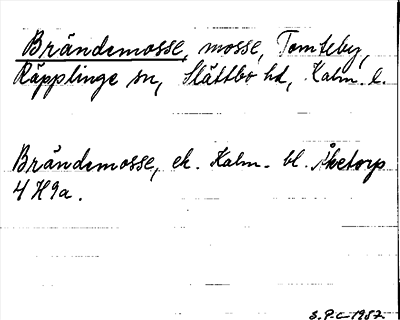 Brändemosse, mosse, Tomteby,
Räpplinge sn, Slättbo hd, Kalm. l.
Brändemosse, ek. Kalm. bl. Åketorp
4 H 9a.
S.P-C 1957